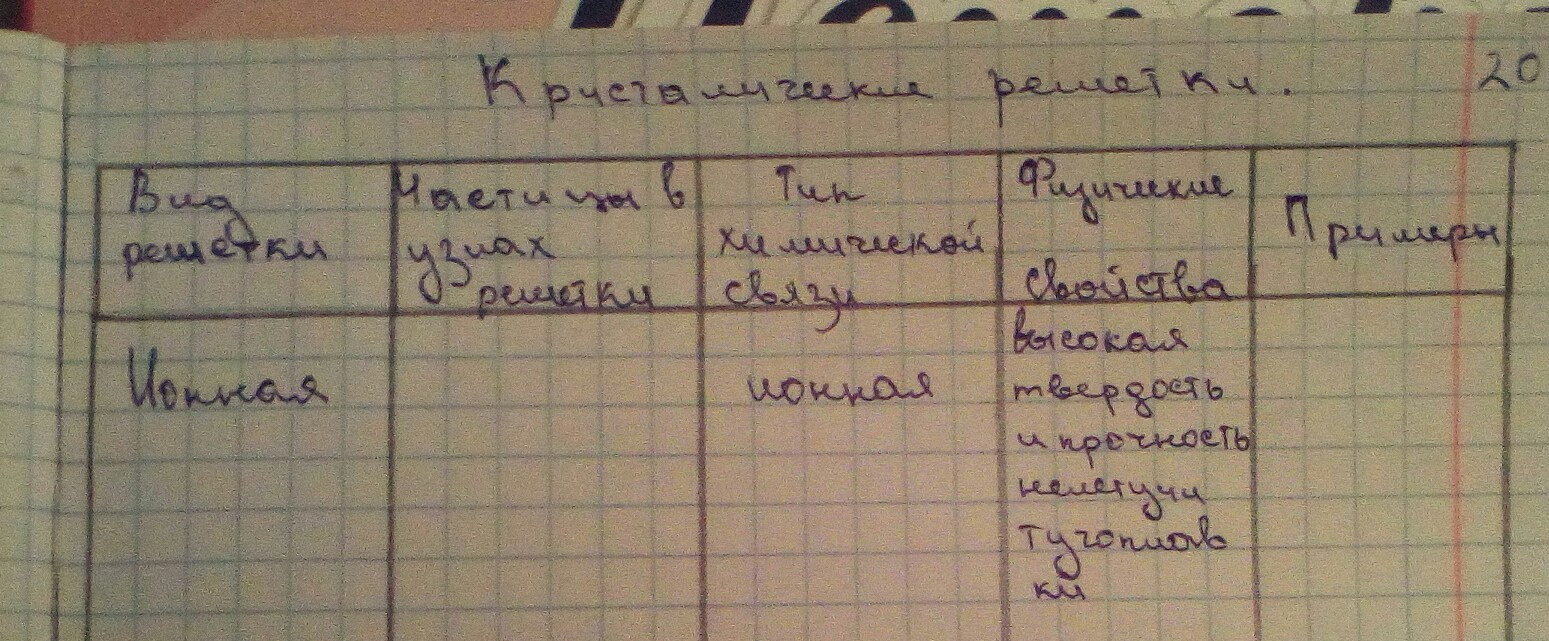 Кристалические решетки. 20
Вид
решетки
Частицы в
узлах
решетки
Тип
химической
связи
Физические
свойства
Примеры
Ионная
ионная
высокая
твердость
и прочность
нелетучи
тугоплав
ки